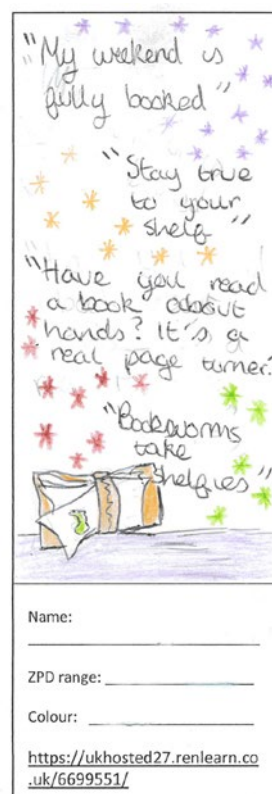 "My weekend is
fully booked"
"Stay true
to your
shelf"
"Have you read
a book about
hands? It's a
real page turner."
"Bookworms
take
shelfies"
Name:
ZPD range:
Colour:
https://ukhosted27.renlearn.co
.uk/6699551/